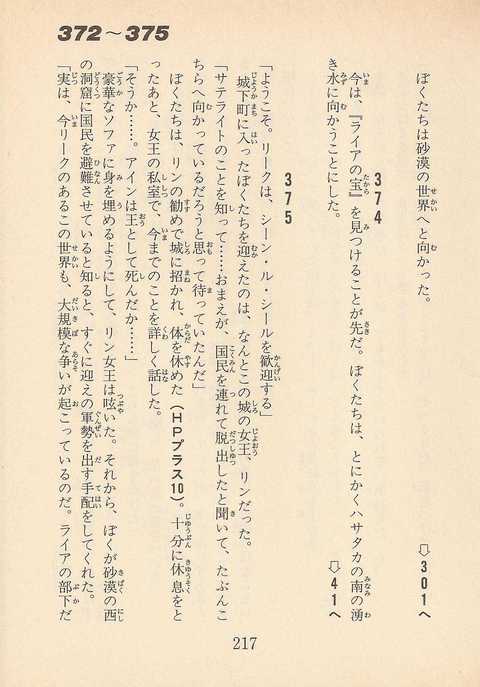 372～375
ぼくたちは砂漠の世界へと向かった。
⇨301へ
374
今は、『ライアの宝』を見つけることが先だ。ぼくたちは、とにかくハサタカの南の湧
き水に向かうことにした。
⇨41へ
375
「ようこそ。リークは、シーン・ル・シールを歓迎する」
城下町に入ったぼくたちを迎えたのは、なんとこの城の女王、リンだった。
「サテライトのことを知って……おまえが、国民を連れて脱出したと聞いて、たぶんこ
ちらへ向かっているだろうと思って待っていたんだ」
ぼくたちは、リンの勧めで城に招かれ、体を休めた（HPプラス10）。十分に休息をと
ったあと、女王の私室で、今までのことを詳しく話した。
「そうか……。アインは王として死んだか……」
豪華なソファに身を埋めるようにして、リン女王は呟いた。それから、ぼくが砂漠の西
の洞窟に国民を避難させていると知ると、すぐに迎えの軍勢を出す手配をしてくれた。
「実は、今リークのあるこの世界も、大規模な争いが起こっているのだ。ライアの部下だ
217